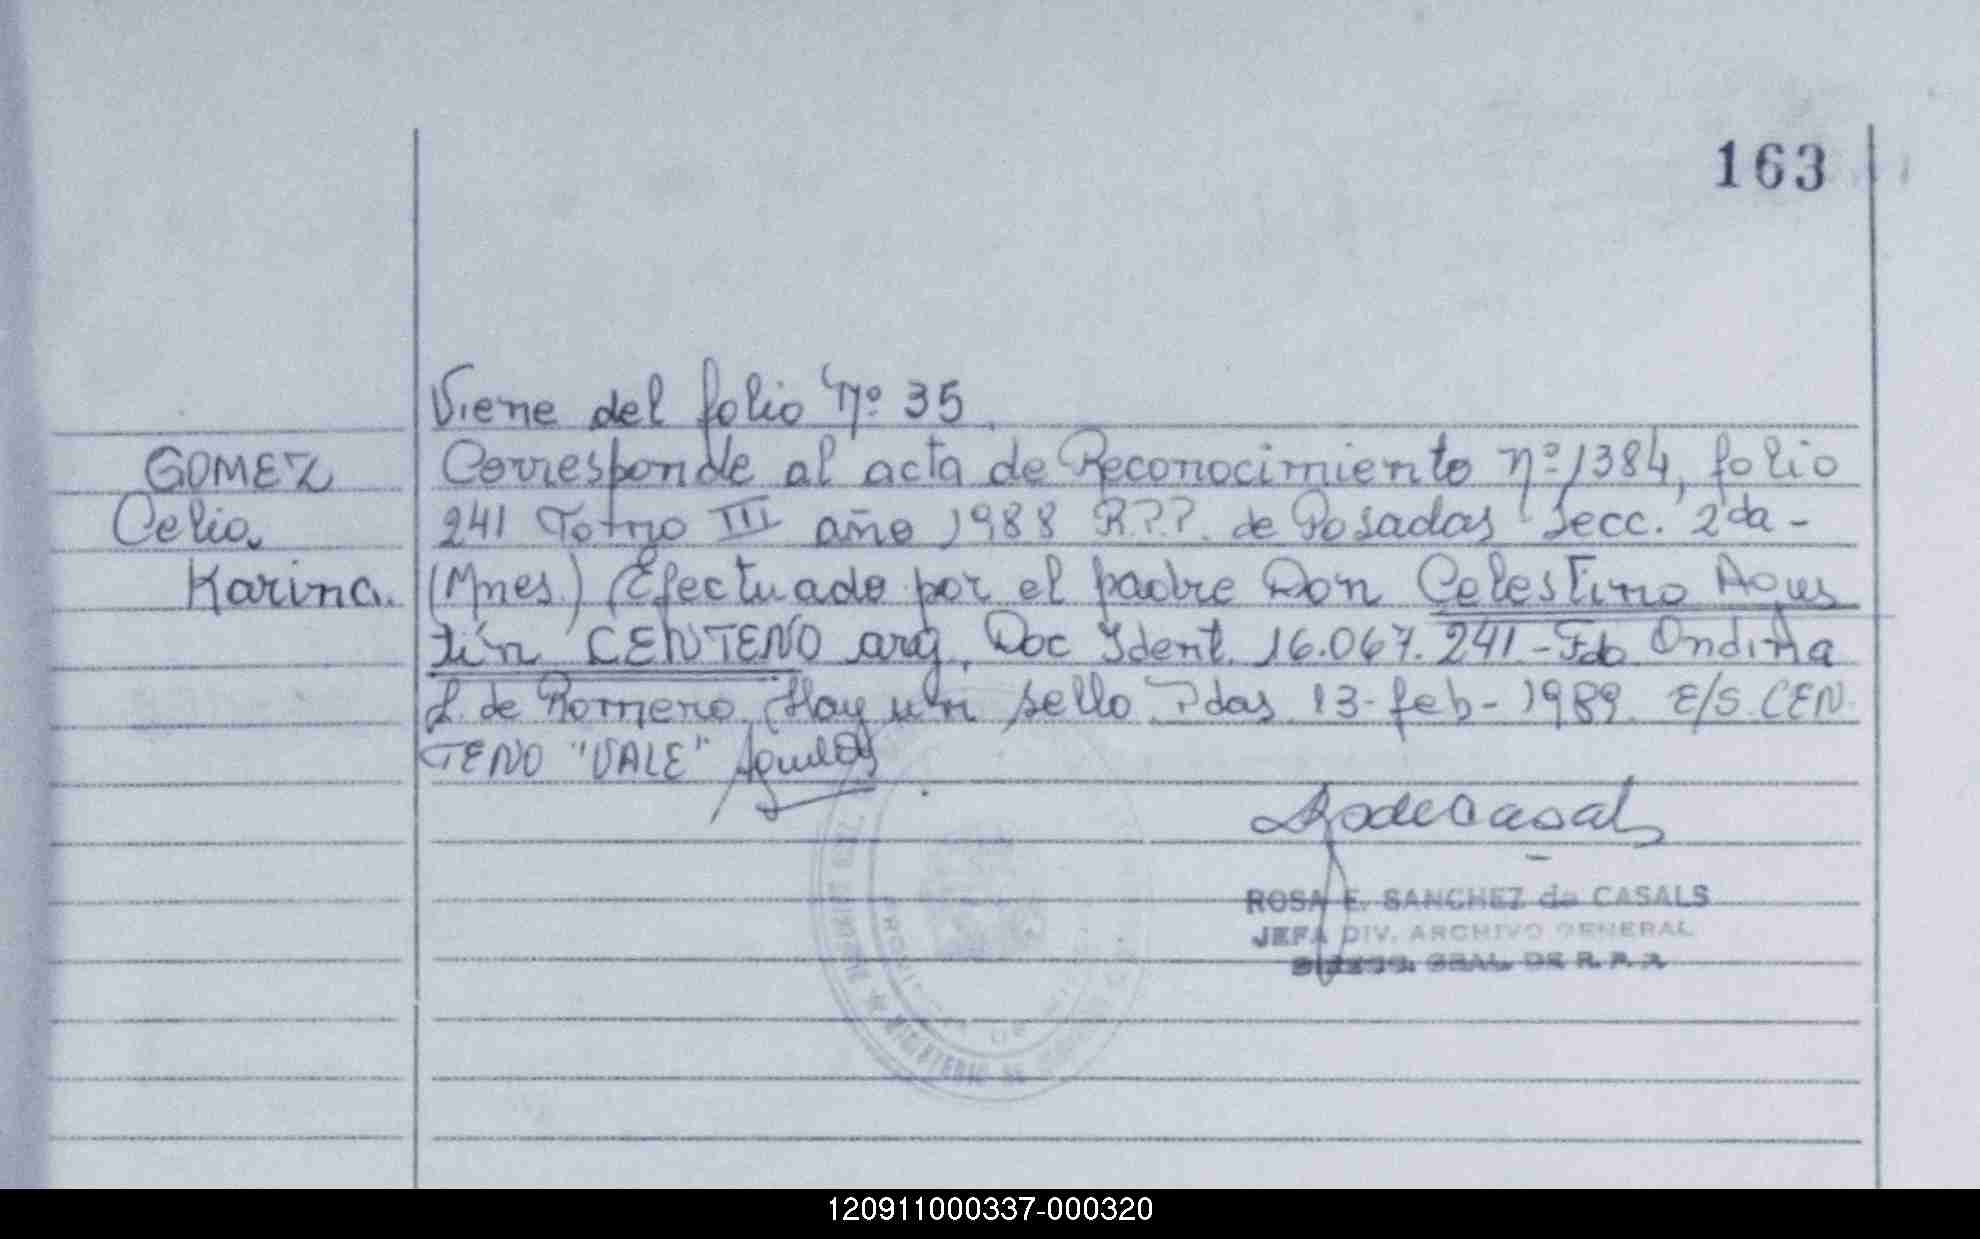 163
Viene del folio Nº 35
GOMEZ
Corresponde al acta de Reconocimiento nº 1384, folio
Celia
241 Tomo III año 1988 R.P.P. de Posadas Secc. 2da-
Karina.
(Mnes.) Efectuado por el padre Don Celestino Agus
tín CENTENO arg. Doc Ident. 16.067.241-Fdo Ondina
L. de Romero. Hay un sello Pdas 13-feb-1989. E/S. CEN
TENO "VALE"
ROSA E. SANCHEZ de CASALS
JEFA DIV. ARCHIVO GENERAL
GRAL. DE R. P. P.
MINISTERIO DE
120911000337-000320